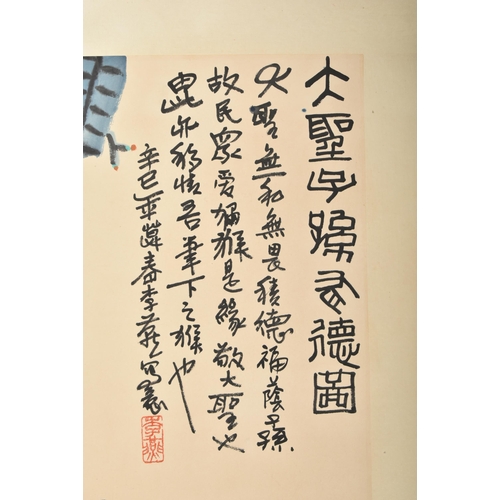 大聖子孫有德圖
大聖無私無畏積德福蔭子孫
故民眾愛獼猴是緣敬大聖也
亦移情吾筆下之猴也
辛巳春李燕寫意
李燕